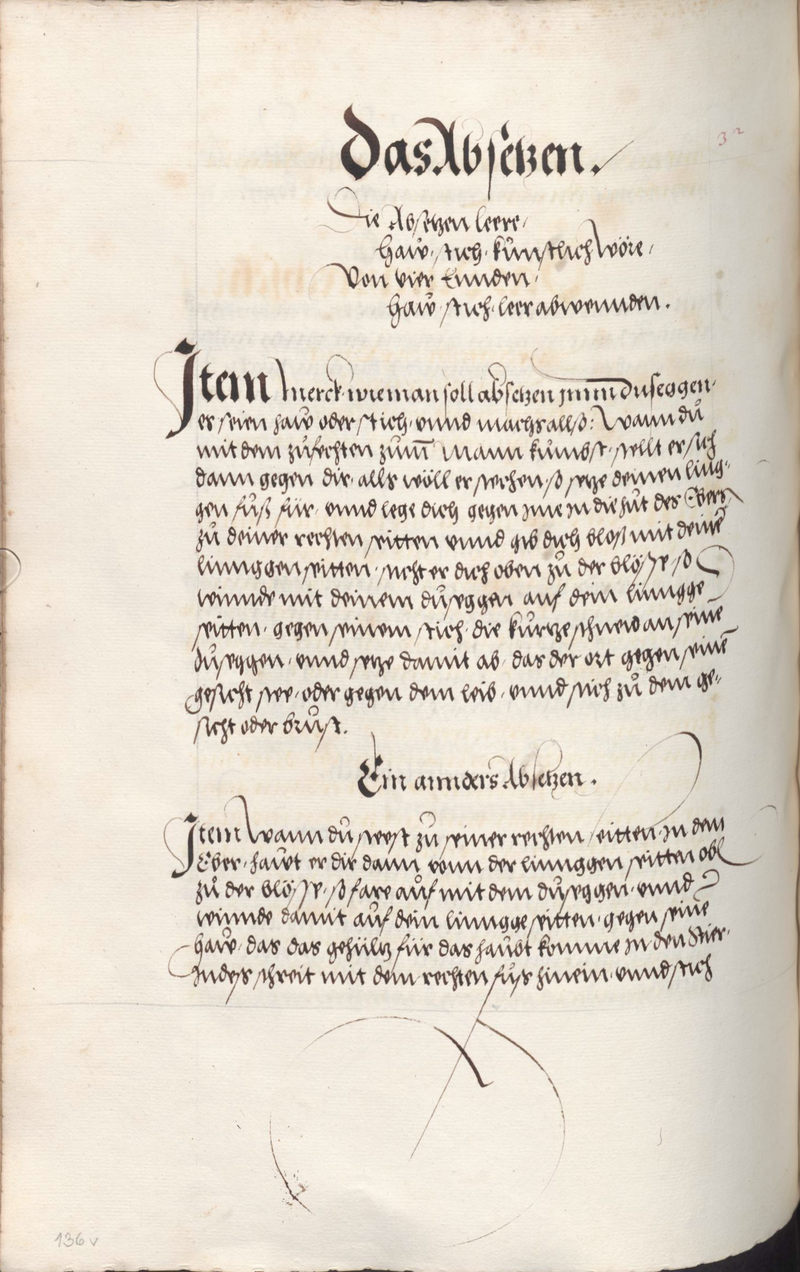 Das Absetzen.
32
Die Absetzen leere,
Haw, stich, kunstlich wöre,
Von vier Lunden,
Haw, stich, leer abwennden.
Item merck wie man soll absetzen Jmm duseggen,
er seien haw oder stich, vnnd machs allso: Wann du
mit dem zufechten zum Mann kumbst, stellt er sich
dann gegen dir, alls wöll er stechen, so setze deinen ling-
gen fuß für, vnnd lege dich gegen jme in die hut des Ebers
zu deiner rechten seitten vnnd gib dich bloß mit deine
linnggen seitten, sticht er dich oben zu der blösse, so
winnde mit deinem duseggen auf dein linngge
seitten, gegen seinem stich, die kurtze schneid an seine
duseggen, vnnd setze damit ab, das der ort gegen seine
gesicht stee, oder gegen dem leib, vnnd stich zu dem ge-
sicht oder brust.
Ein annders Absetzen.
Item wann du steest zu seiner rechten seitten, in dem
Eber, hawt er dir dann vonn der linnggen seitten obn
zu der blösse, so fare auf mit dem duseggen, vnnd
winnde damit auf dein linngge seitten, gegen seine
haw, das das gehiltz für das haubt komme in den Stier,
Indes schreit mit dem rechten fus hinein, vnnd stich
136v